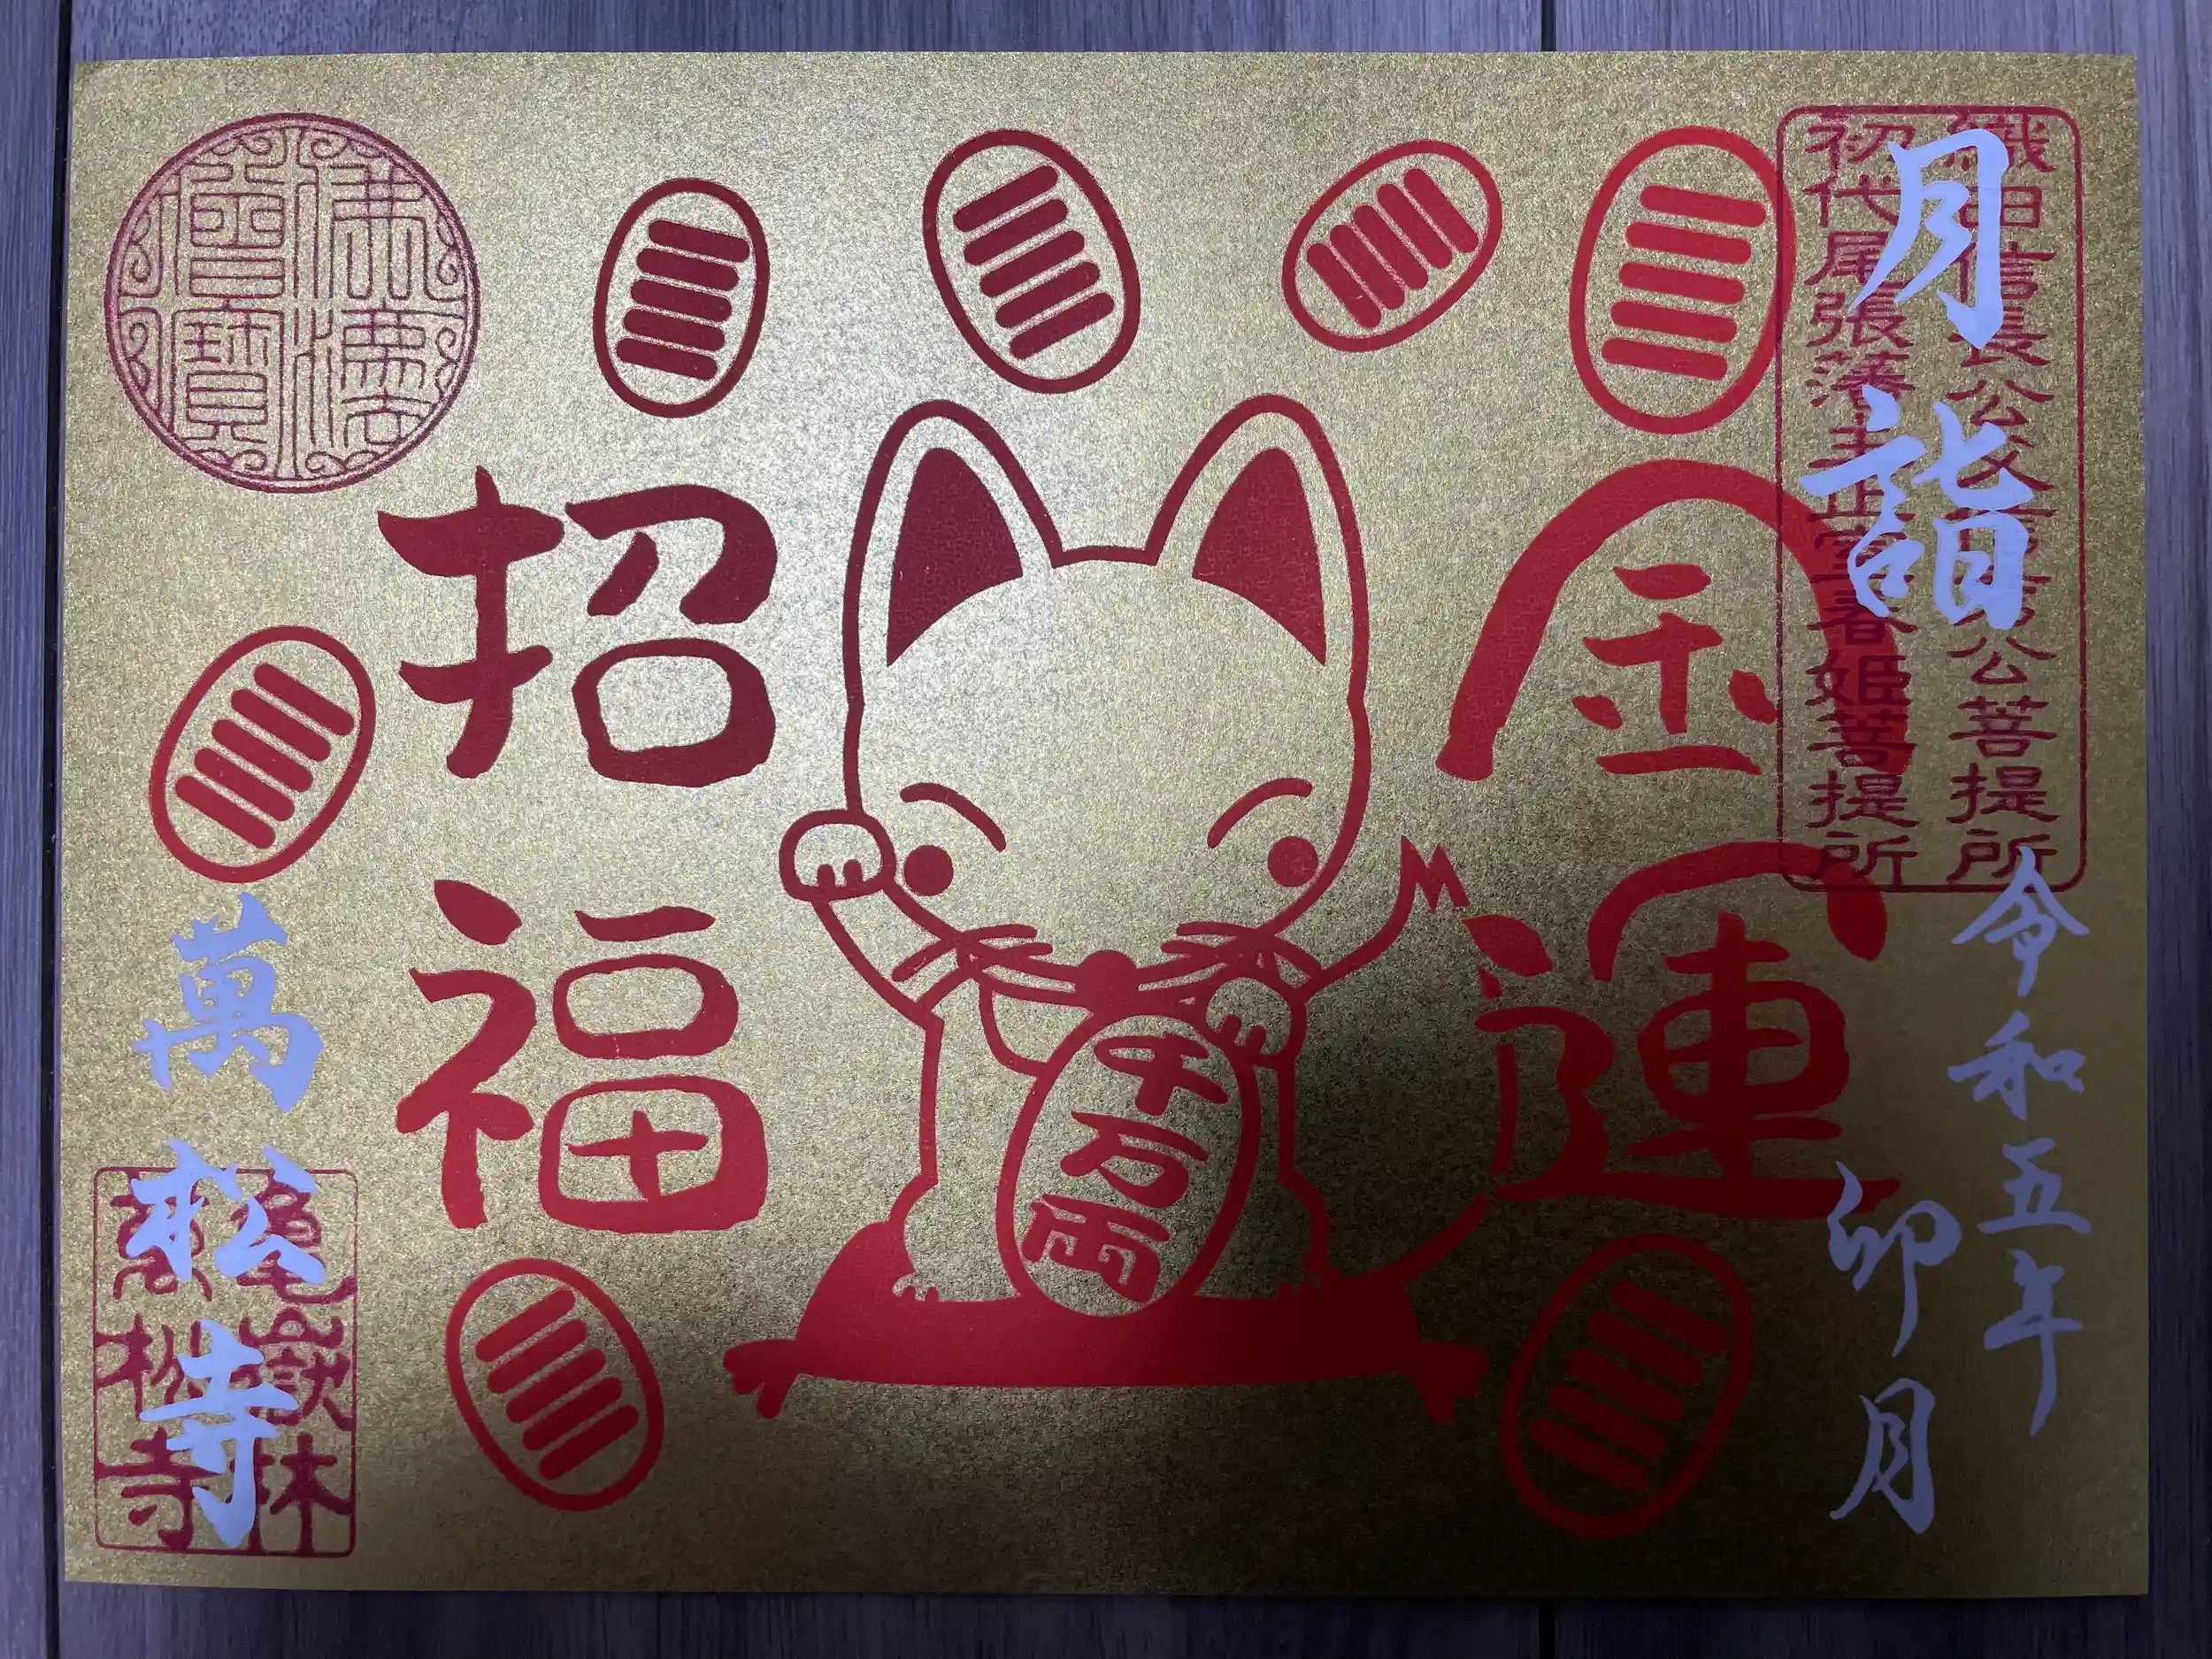 月詣
織田信長公父信秀公菩提所
初代尾張藩主正室春姫菩提所
令和五年
卯月
金運
千万両
招福
佛法僧寶
萬松寺
亀嶽林
萬松寺